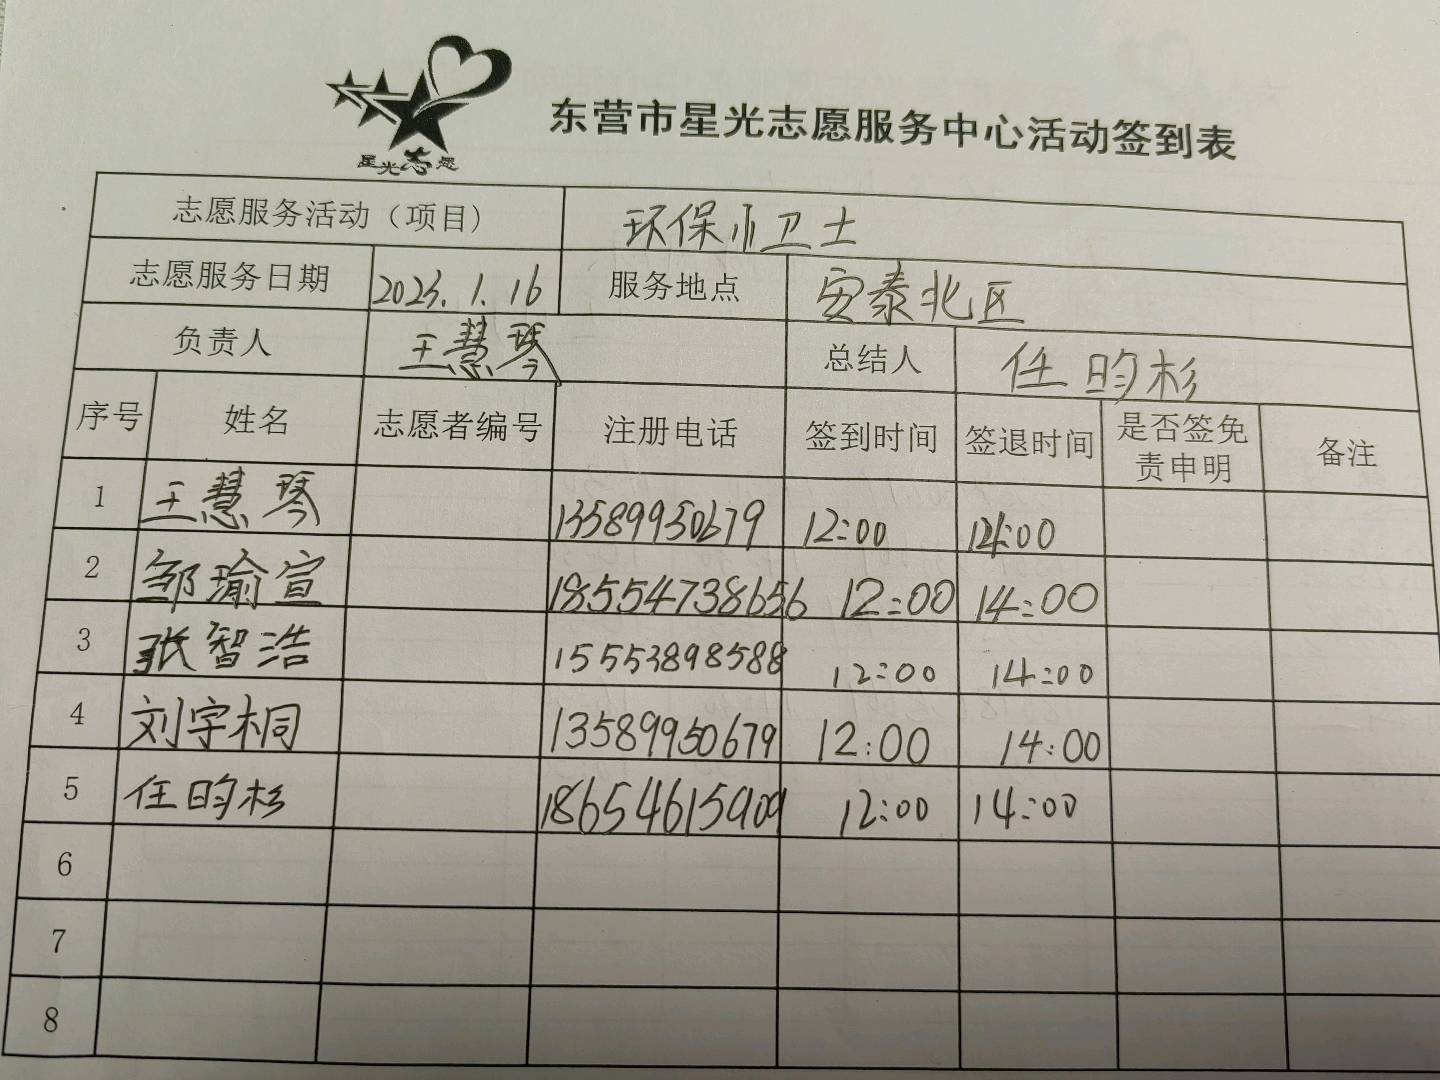 星光志愿
东营市星光志愿服务中心活动签到表
志愿服务活动（项目） 环保小卫士
志愿服务日期 2023.1.16 服务地点 安泰北区
负责人 王慧琴 总结人 任昀杉
序号 姓名 志愿者编号 注册电话 签到时间 签退时间 是否签免责申明 备注
1 王慧琴 13589950679 12:00 14:00
2 邹瑜宣 18554738656 12:00 14:00
3 张智浩 15553898588 12:00 14:00
4 刘宇桐 13589950679 12:00 14:00
5 任昀杉 18654615909 12:00 14:00
6
7
8